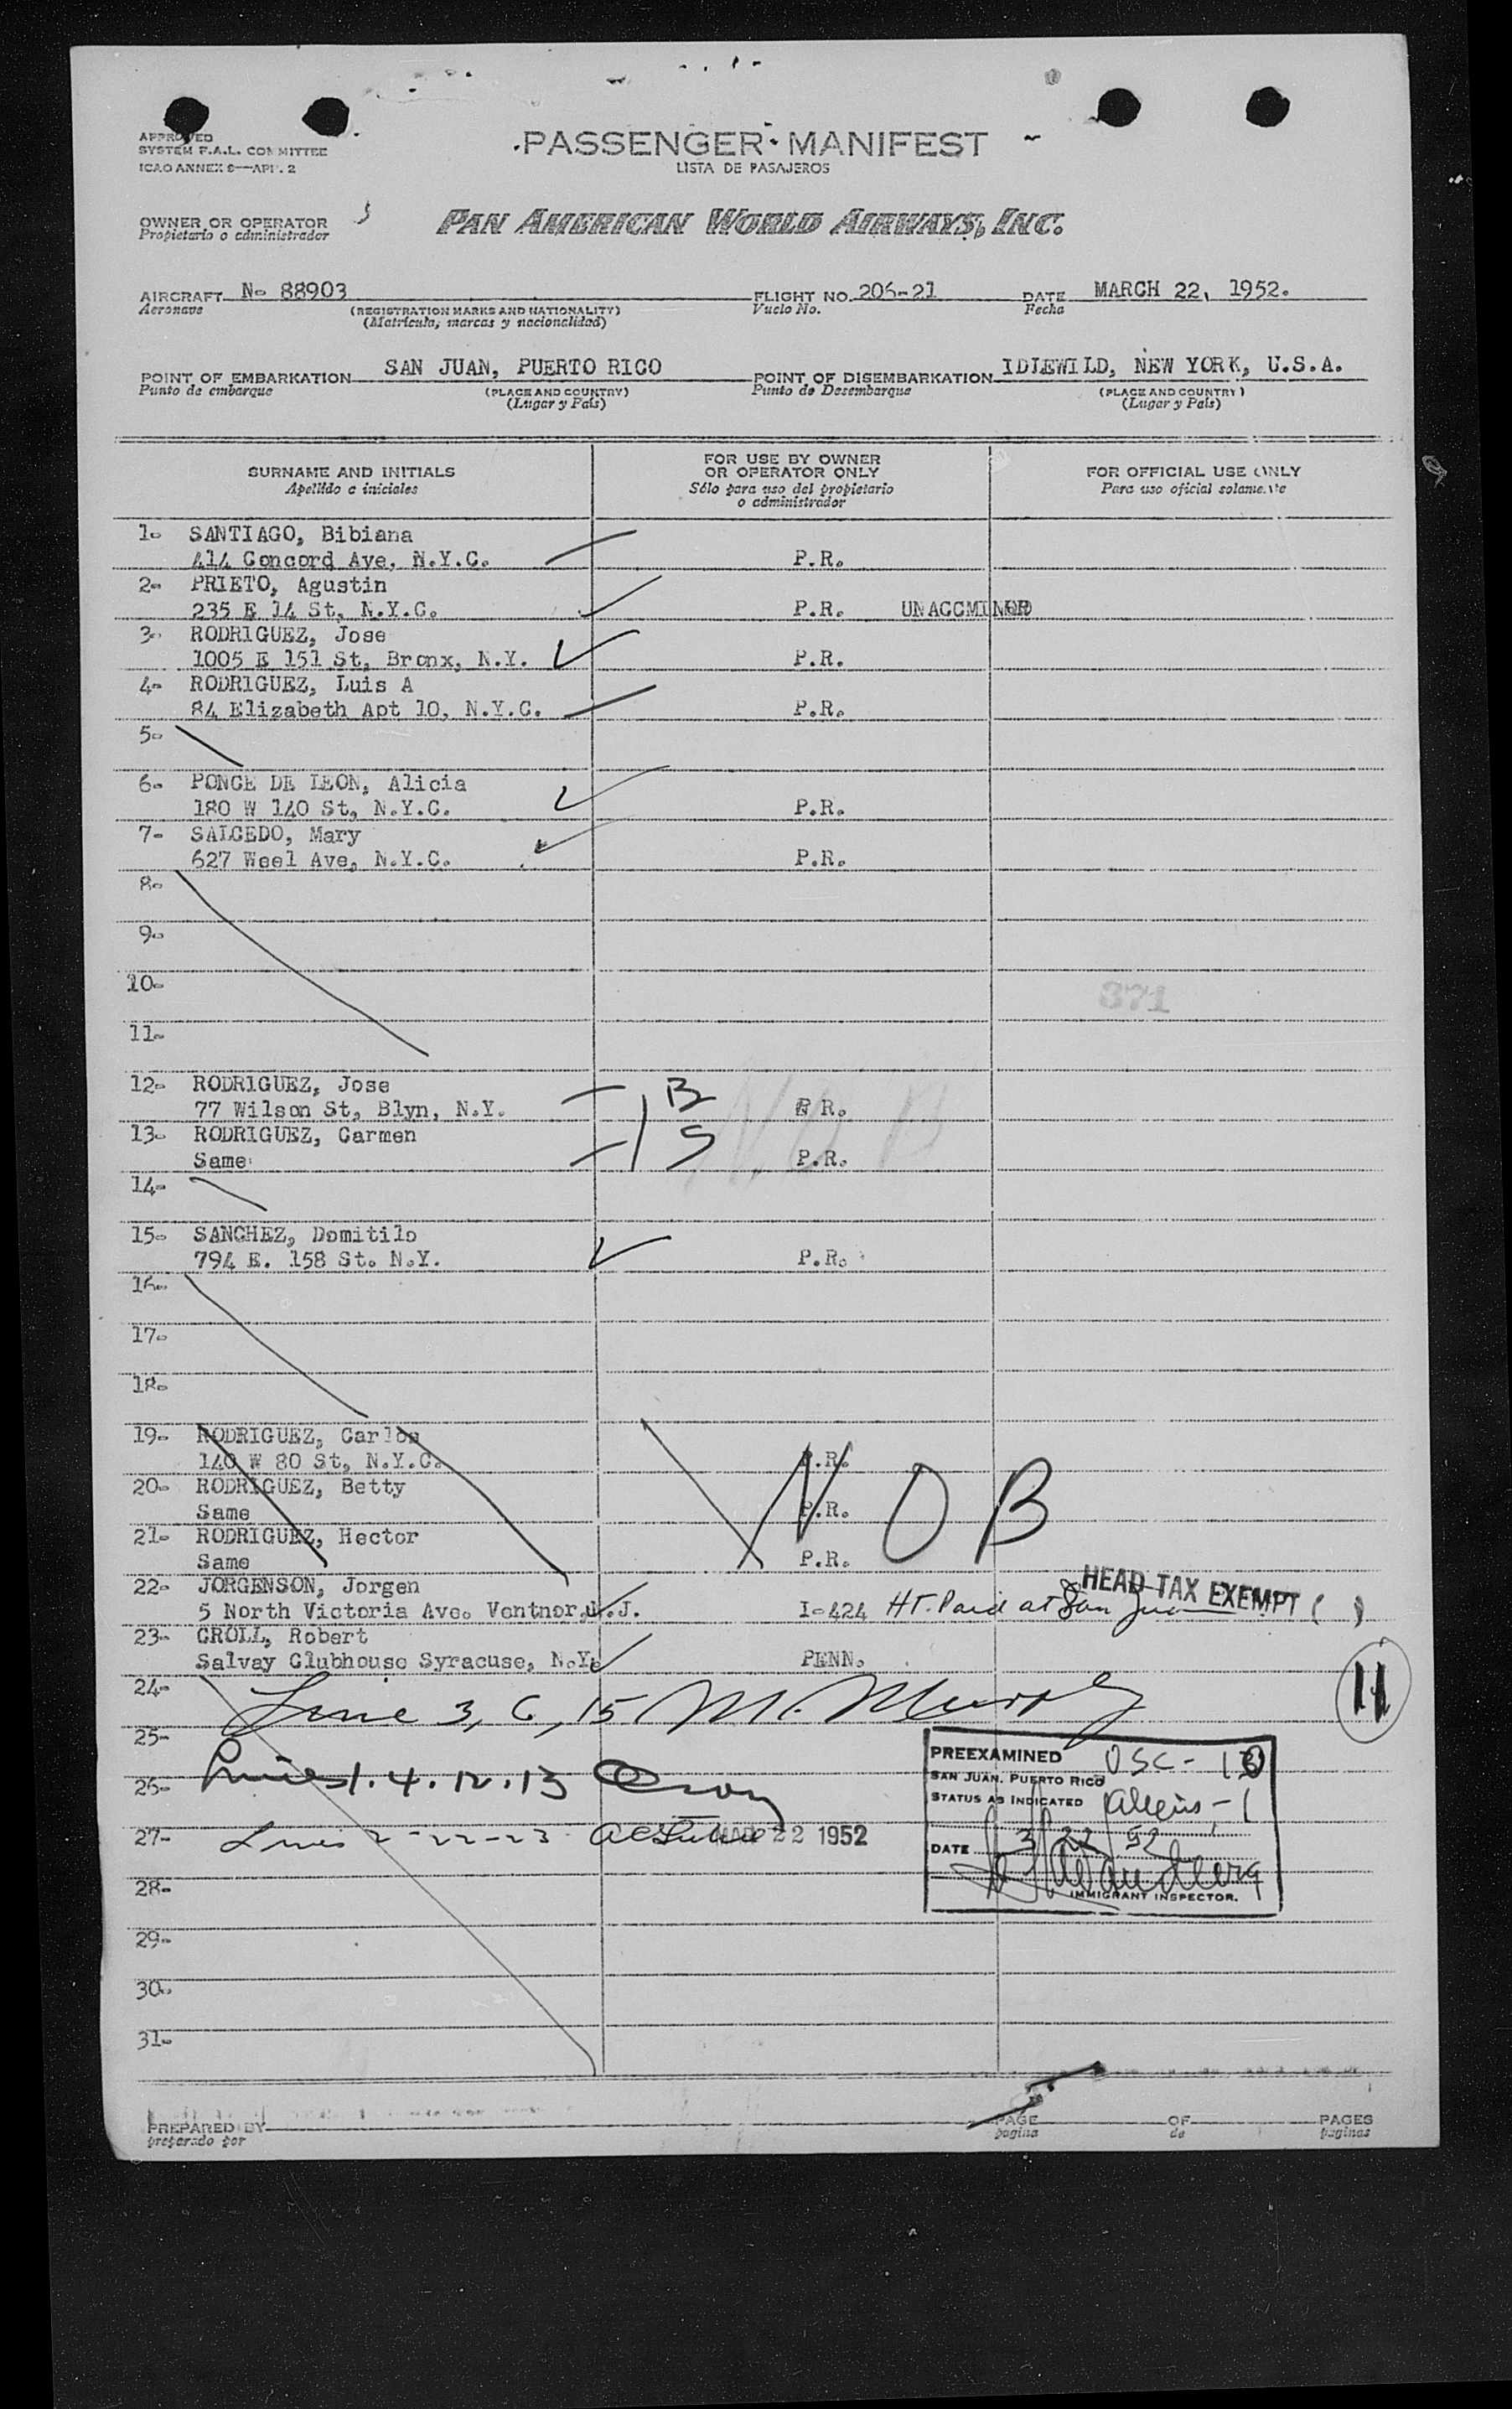 APPROVED
SYSTEM F.A.L. COMMITTEE
ICAO ANNEX 9—APP. 2
PASSENGER MANIFEST
LISTA DE PASAJEROS
OWNER OR OPERATOR
Propietario o administrador
PAN AMERICAN WORLD AIRWAYS, INC.
AIRCRAFT N- 88903 FLIGHT NO. 206-21 DATE MARCH 22, 1952.
Aeronave (REGISTRATION MARKS AND NATIONALITY) Vuelo No. Fecha
(Matrícula, marcas y nacionalidad)
POINT OF EMBARKATION SAN JUAN, PUERTO RICO POINT OF DISEMBARKATION IDLEWILD, NEW YORK, U.S.A.
Punto de embarque (PLACE AND COUNTRY) Punto de Desembarque (PLACE AND COUNTRY)
(Lugar y País) (Lugar y País)
SURNAME AND INITIALS
Apellido e iniciales
FOR USE BY OWNER
OR OPERATOR ONLY
Sólo para uso del propietario
o administrador
FOR OFFICIAL USE ONLY
Para uso oficial solamente
1- SANTIAGO, Bibiana
414 Concord Ave, N.Y.C. P.R.
2- PRIETO, Agustin
235 E 14 St, N.Y.C. P.R. UNACCMINOR
3- RODRIGUEZ, Jose
1005 E 151 St, Bronx, N.Y. P.R.
4- RODRIGUEZ, Luis A
84 Elizabeth Apt 10, N.Y.C. P.R.
5-
6- PONCE DE LEON, Alicia
180 W 140 St, N.Y.C. P.R.
7- SALCEDO, Mary
627 Weel Ave, N.Y.C. P.R.
8-
9-
10-
371
11-
12- RODRIGUEZ, Jose B
77 Wilson St, Blyn, N.Y. P R.
13- RODRIGUEZ, Carmen S NOB
Same P.R.
14-
15- SANCHEZ, Domitilo
794 E. 158 St. N.Y. P.R.
16-
17-
18-
19- RODRIGUEZ, Carlos
140 W 80 St, N.Y.C. P.R.
20- RODRIGUEZ, Betty NOB
Same P.R.
21- RODRIGUEZ, Hector
Same P.R.
22- JORGENSON, Jorgen HEAD TAX EXEMPT ( )
5 North Victoria Ave. Ventnor, N.J. I-424 HT. Paid at San Juan
23- CROLL, Robert
Salvay Clubhouse Syracuse, N.Y. PENN.
11
24- Line 3, 6, 15 M. Murphy
25-
26- Lines 1. 4. 12. 13
27- Lines 2-22-23 MAR 22 1952
PREEXAMINED USC-10
SAN JUAN, PUERTO RICO
STATUS AS INDICATED Aliens-1
DATE 3/22/52
IMMIGRANT INSPECTOR.
28-
29-
30-
31-
PREPARED BY PAGE OF PAGES
preparado por pagina de paginas